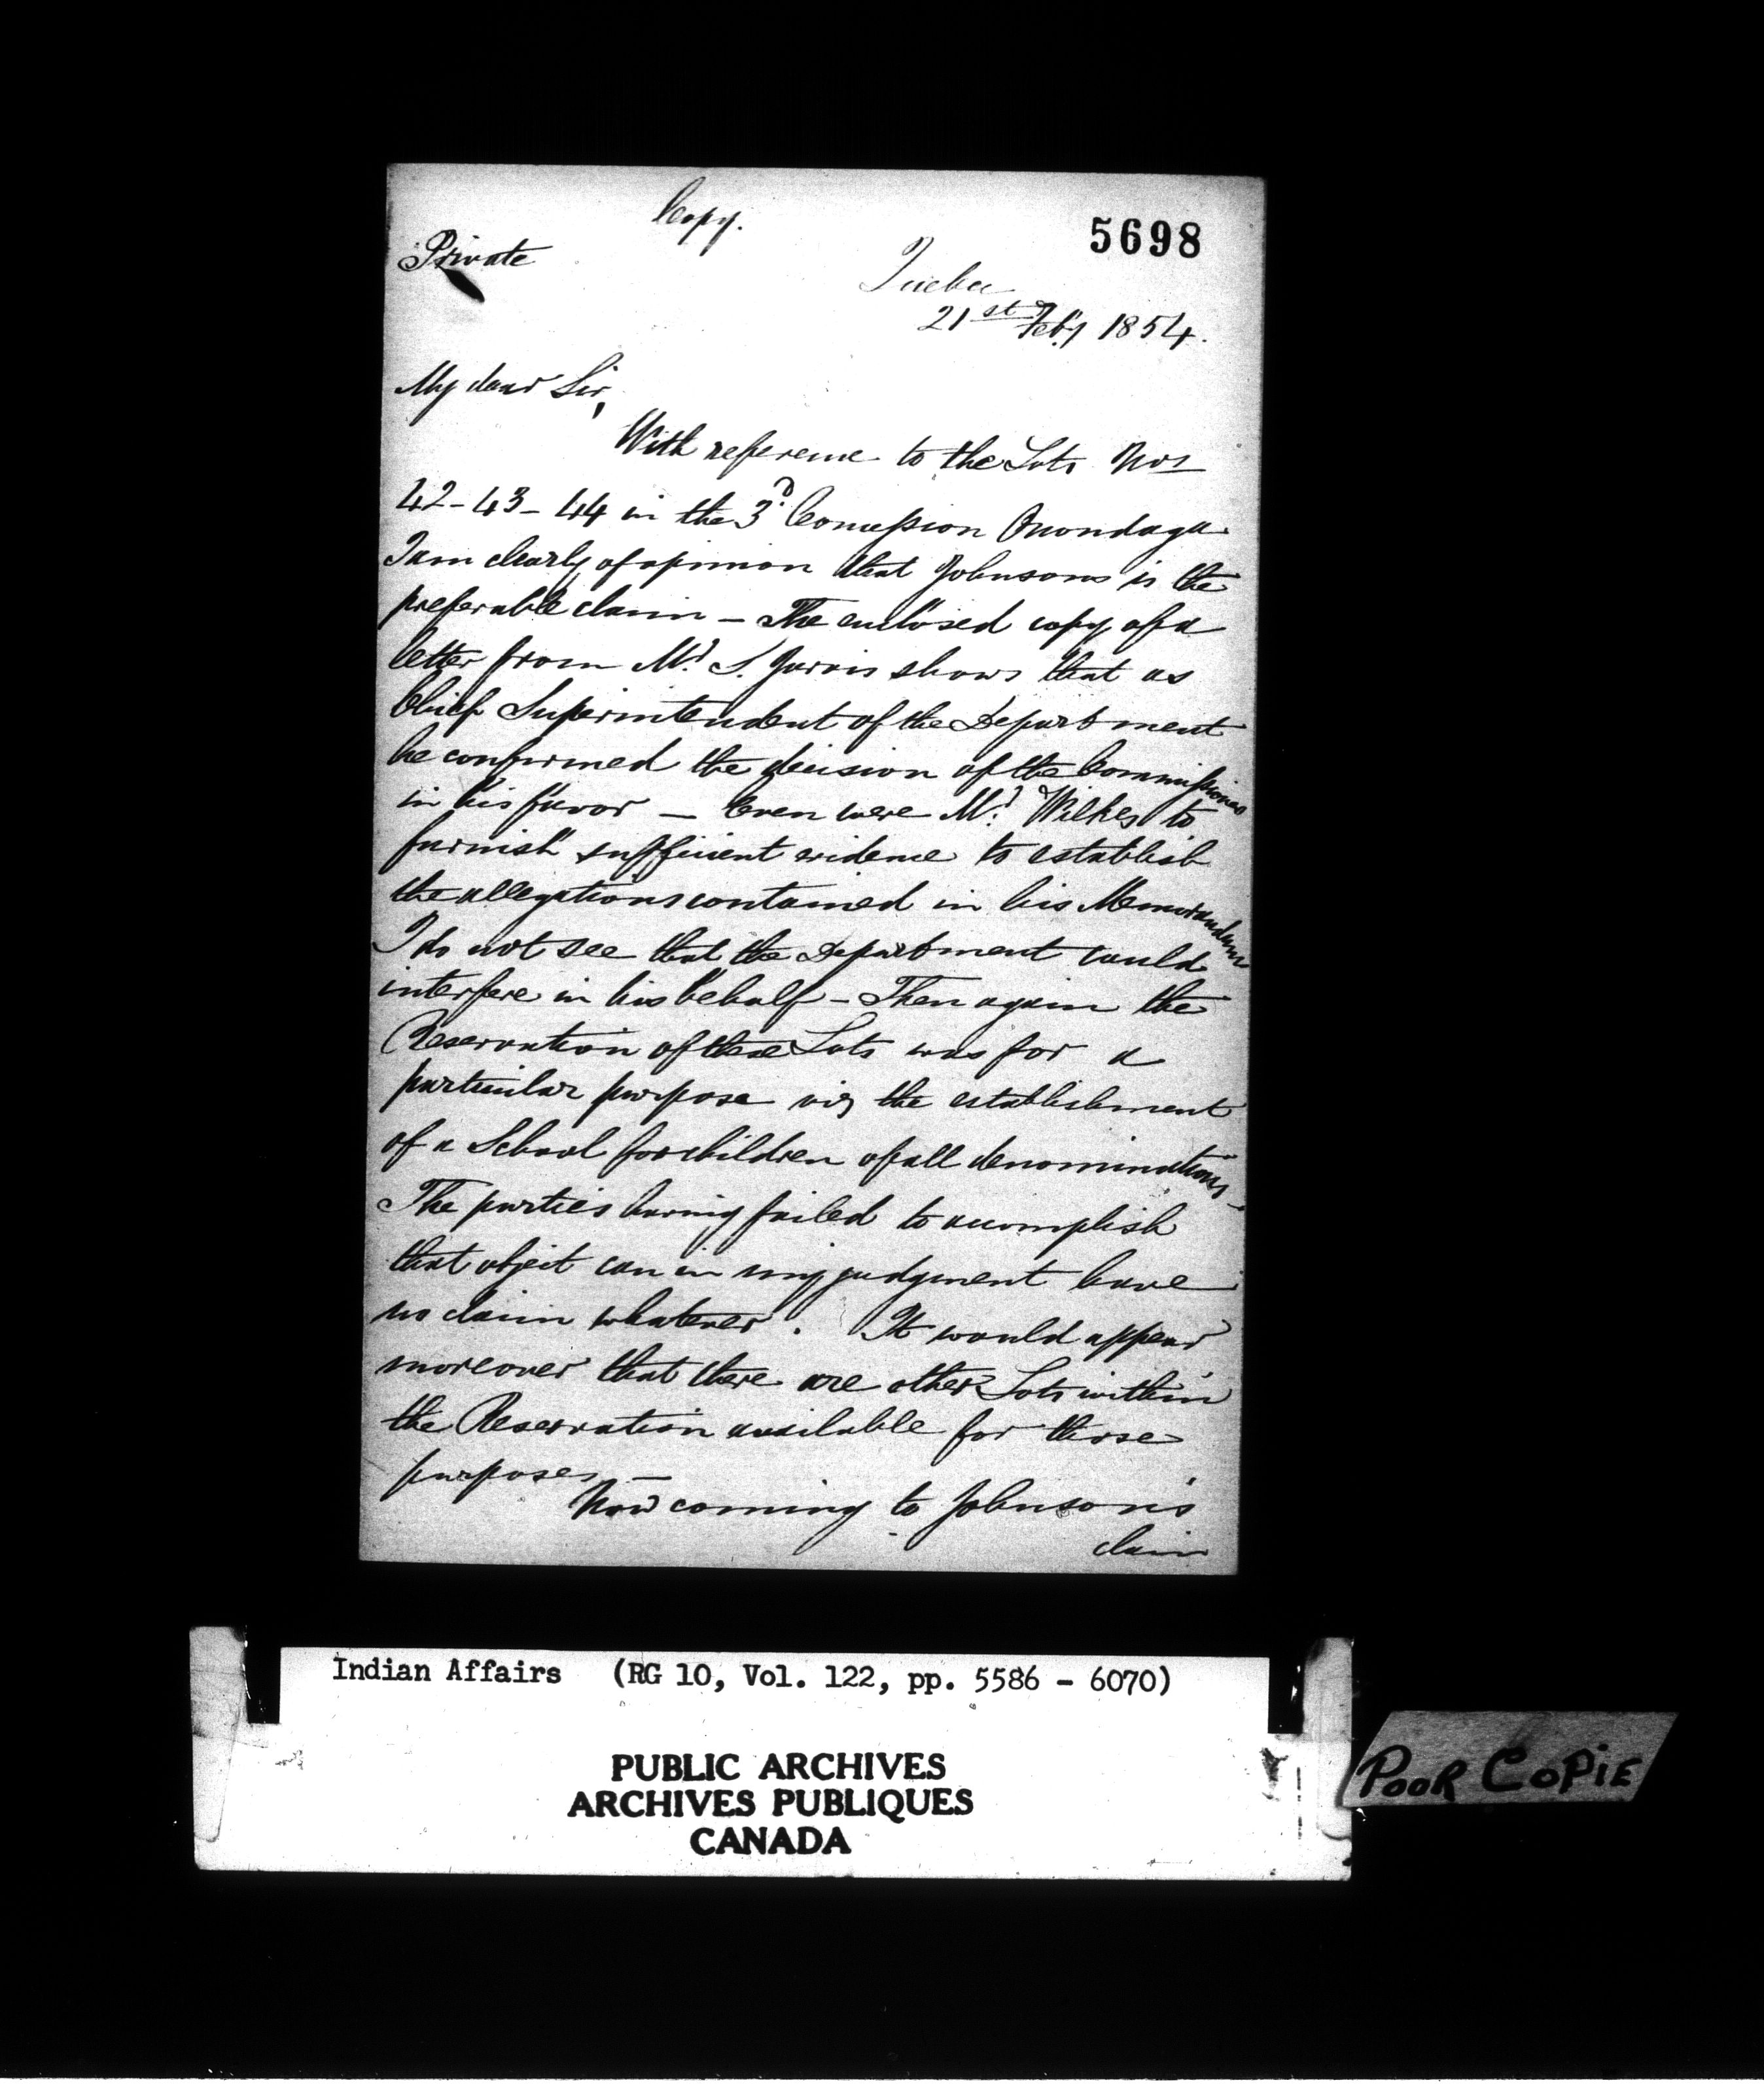 Copy.
5698
Private
Quebec
21st Feby 1854.
My dear Sir,
With reference to the Lots Nos
42-43-44 in the 3d Concession Onondaga
I am clearly of opinion that Johnsons is the
preferable claim – The enclosed copy of a
letter from Mr S. Jarvis shows that as
Chief Superintendent of the Department
he confirmed the decision of the Commissioners
in his favor – Even were Mr Wilkes to
furnish sufficient evidence to establish
the allegations contained in his Memorandum
I do not see that the Department could
interfere in his behalf – Then again the
Reservation of these Lots was for a
particular purpose viz the establishment
of a School for children of all denominations –
The parties having failed to accomplish
that object can in my judgment have
no claim whatever. It would appear
moreover that there are other Lots within
the Reservation available for those
purposes –
Now coming to Johnson's
claim
Indian Affairs (RG 10, Vol. 122, pp. 5586 - 6070)
PUBLIC ARCHIVES
ARCHIVES PUBLIQUES
CANADA
POOR COPIE